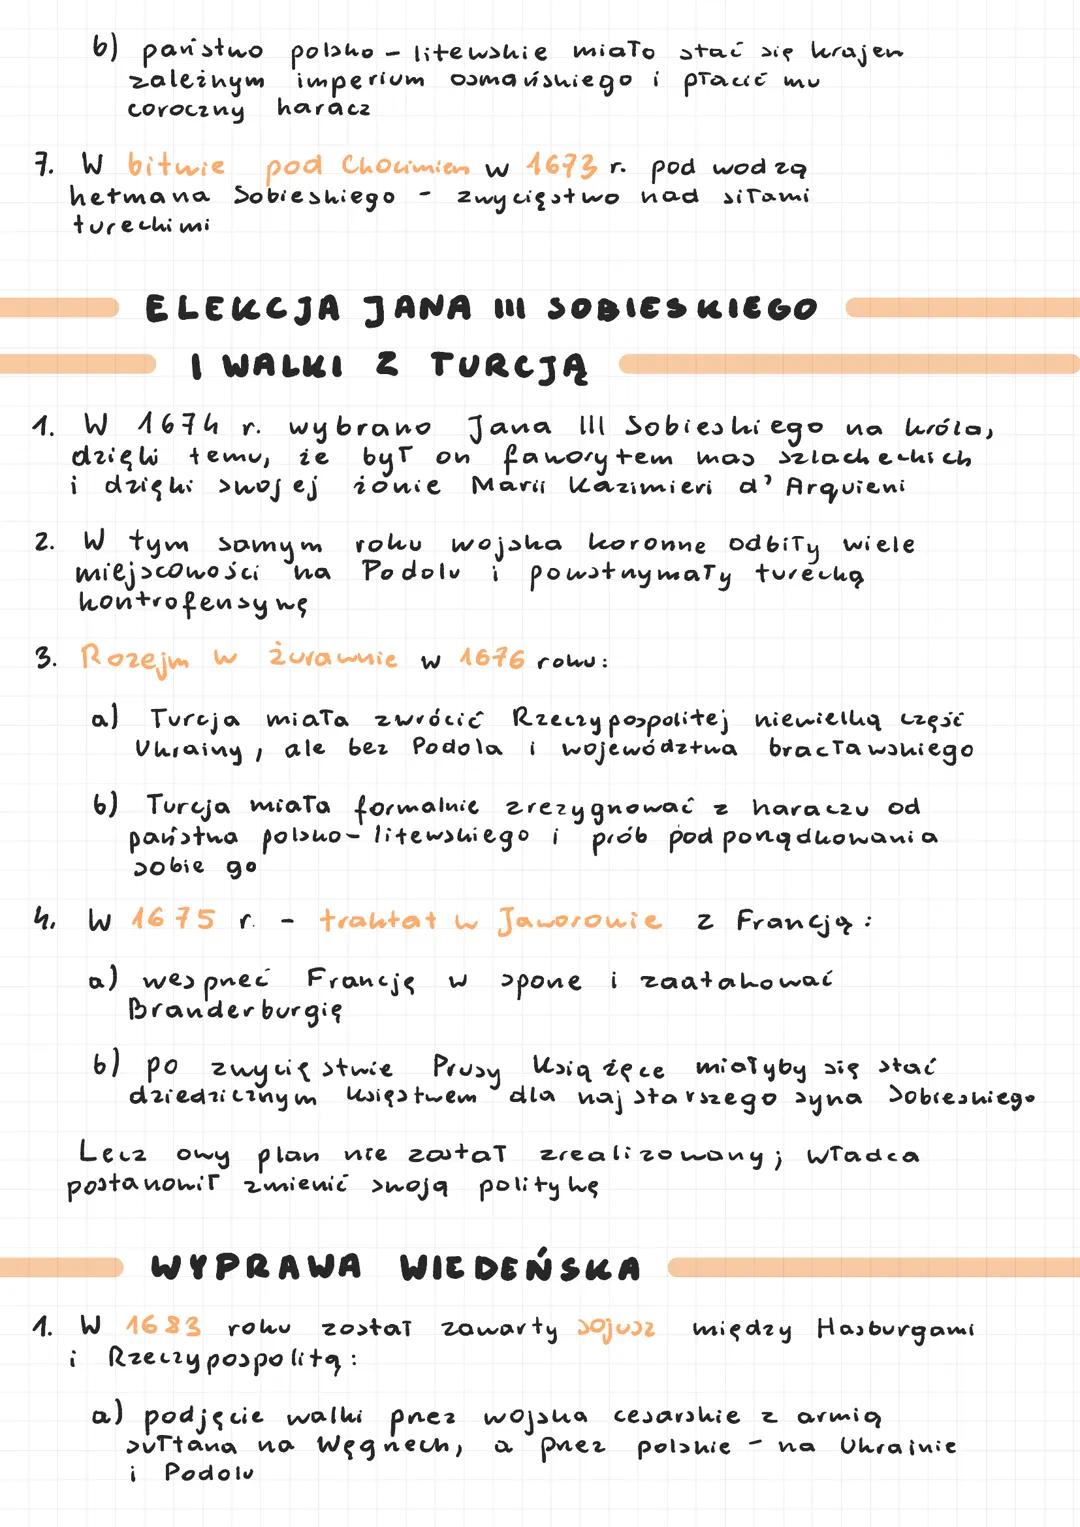 b) państwo polsko - litewskie miało stać się krajem
zależnym imperium osmańskiego i płacić mu
coroczny haracz
7. W bitwie pod Chocimiem w 1673 r. pod wodzą
hetmana Sobieskiego - zwycięstwo nad siłami
tureckimi
ELEKCJA JANA III SOBIESKIEGO
I WALKI Z TURCJĄ
1. W 1674 r. wybrano Jana III Sobieskiego na króla,
dzięki temu, że był on faworytem mas szlacheckich
i dzięki swojej żonie Marii Kazimieri d'Arquieni
2. W tym samym roku wojska koronne odbiły wiele
miejscowości na Podolu i powstrzymały turecką
kontrofensywę
3. Rozejm w żurawnie w 1676 roku:
a) Turcja miała zwrócić Rzeczypospolitej niewielką część
Ukrainy, ale bez Podola i województwa bracławskiego
b) Turcja miała formalnie zrezygnować z haraczu od
państwa polsko-litewskiego i prób podporządkowania
sobie go
4. W 1675 r. - traktat w Jaworowie z Francją:
a) wesprzeć Francję w sporze i zaatakować
Branderburgię
b) po zwycięstwie Prusy Książęce miałyby się stać
dziedzicznym księstwem dla najstarszego syna Sobieskiego
Lecz owy plan nie został zrealizowany; władca
postanowił zmienić swoją politykę
WYPRAWA WIEDEŃSKA
1. W 1683 roku został zawarty sojusz między Hasburgami
i Rzeczypospolitą:
a) podjęcie walki przez wojska cesarskie z armią
sułtana na Węgrzech, a przez polskie - na Ukrainie
i Podolu